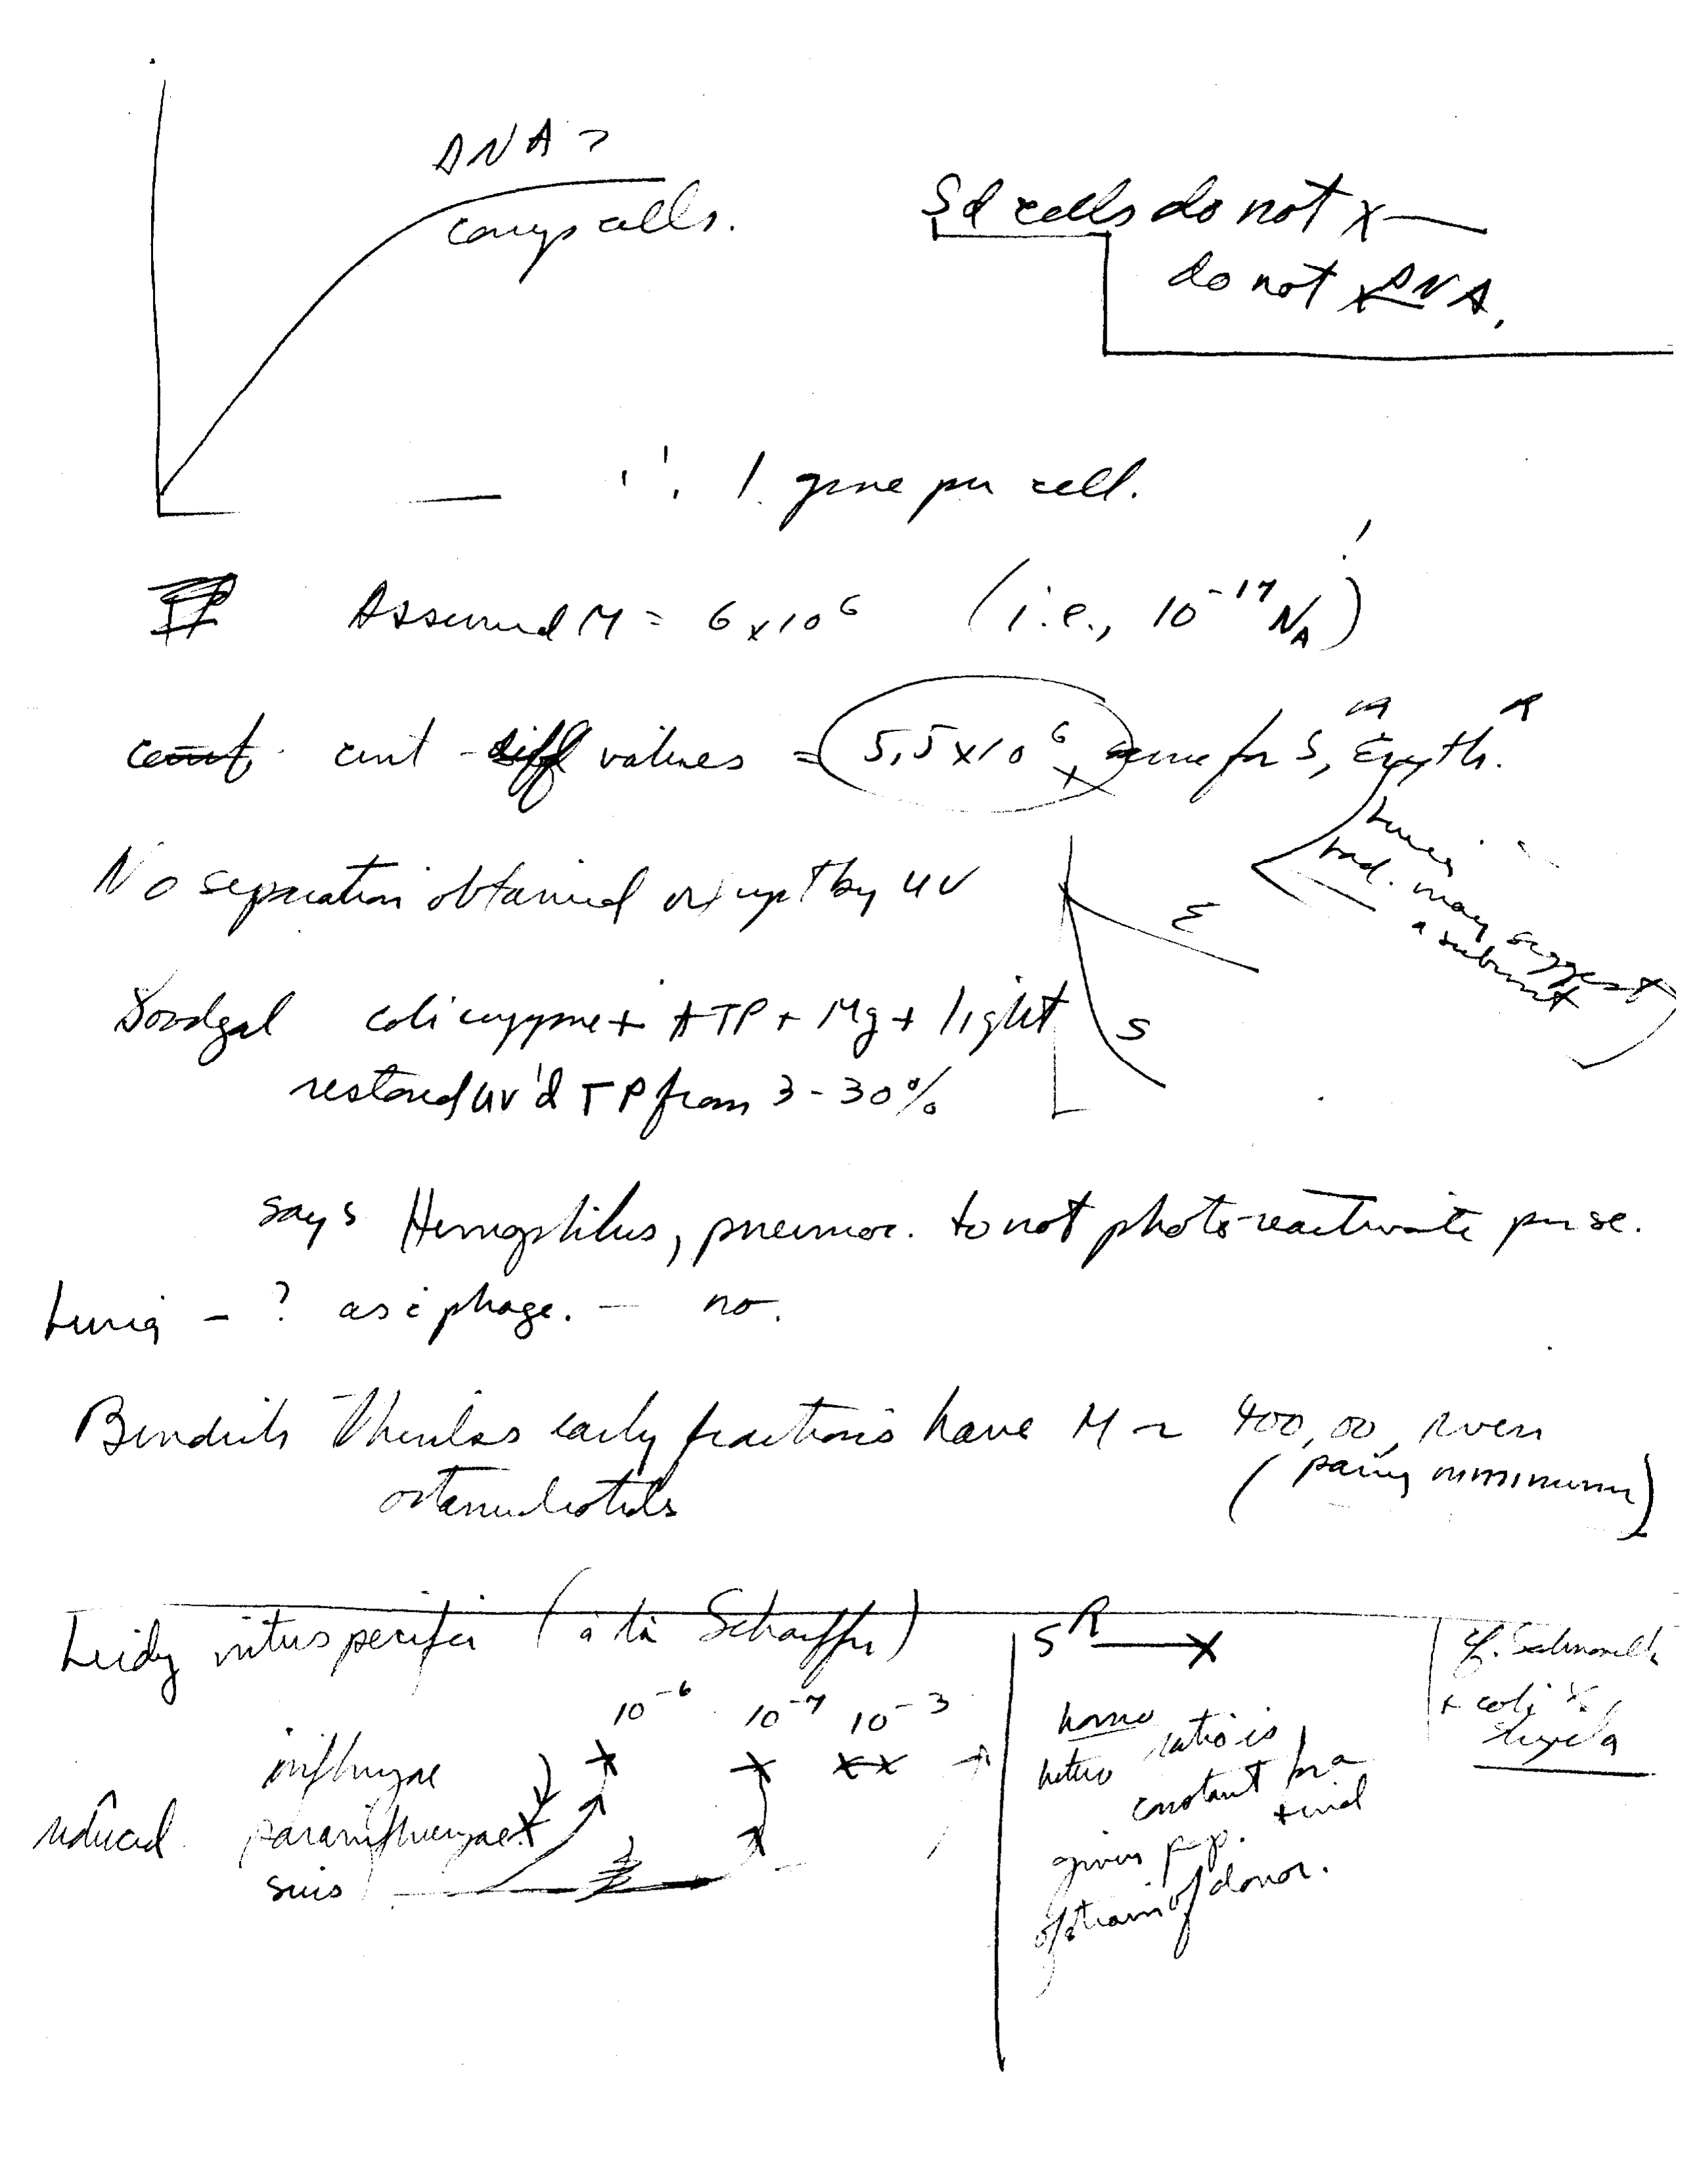 DNA >
cells.
Sd cells do not x—
do not x DNA.
∴ 1 gene per cell.
II Assumed M = 6 x 10^6 (i.e., 10^-17 N_A) !
cent - diff values = 5,5 x 10^6 same for S, Eryth. R
Luria
rad. may suggest
a subunit
No separation obtained except by UV
E
S
Goodgal coli enzyme + ATP + Mg + light
restored UV'd TP from 3 - 30%
says Hemophilus, pneumoc. do not photo-reactivate per se.
Luria - ? as c phage. — no.
Bendich thinks early fractions have M ~ 400,00, even
octanucleotids
(pairing minimum)
Leidy interspecific (à la Schaeffer)
10^-6 10^-4 10^-3
influenzae
reduced parainfluenzae
suis
S^R → X
homo
hetero ratio is
constant for a
given pop. + ind
of strain of donor.
cf. Salmonella
+ coli x